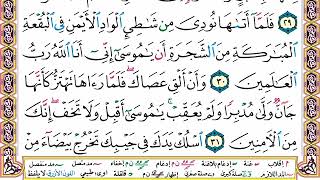 ٢٩ فَلَمَّآ أَتَىٰهَا نُودِىَ مِن شَٰطِئِ ٱلْوَادِ ٱلْأَيْمَنِ فِى ٱلْبُقْعَةِ
ٱلْمُبَٰرَكَةِ مِنَ ٱلشَّجَرَةِ أَن يَٰمُوسَىٰٓ إِنِّىٓ أَنَا ٱللَّهُ رَبُّ
ٱلْعَٰلَمِينَ ٣٠ وَأَنْ أَلْقِ عَصَاكَ فَلَمَّا رَءَاهَا تَهْتَزُّ كَأَنَّهَا
جَآنٌّ وَلَّىٰ مُدْبِرًا وَلَمْ يُعَقِّبْ يَٰمُوسَىٰٓ أَقْبِلْ وَلَا تَخَفْ إِنَّكَ
مِنَ ٱلْءَامِنِينَ ٣١ ٱسْلُكْ يَدَكَ فِى جَيْبِكَ تَخْرُجْ بَيْضَآءَ مِنْ